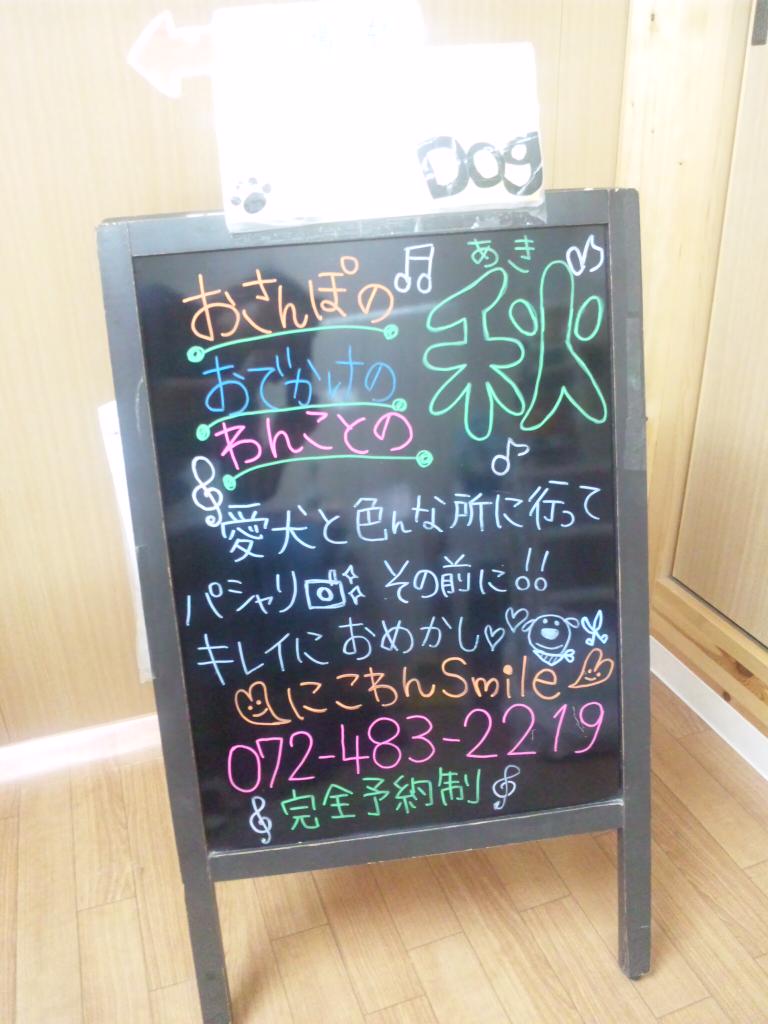 Dog
おさんぽの
おでかけの
わんことの
あき
秋
愛犬と色んな所に行って
パシャリ その前に!!
キレイにおめかし
にこわんSmile
072-483-2219
完全予約制